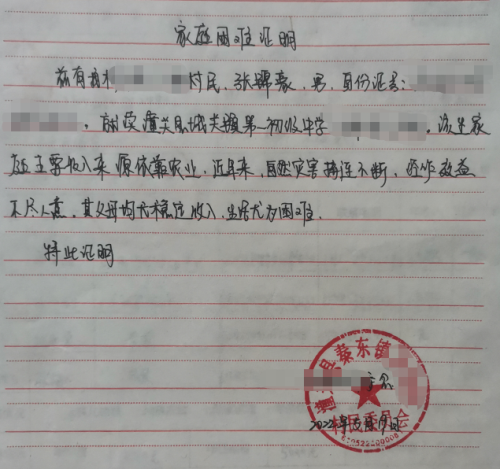 家庭困难证明
兹有我村 村民,张 豪,男,身份证号:
,就读潼关县城关镇第一初级中学 。该生家
庭主要收入来源依靠农业,近年来,自然灾害接连不断,经作效益
不尽人意,其父母均无稳定收入,生活尤为困难.
特此证明
潼 县秦东镇
村民委员会